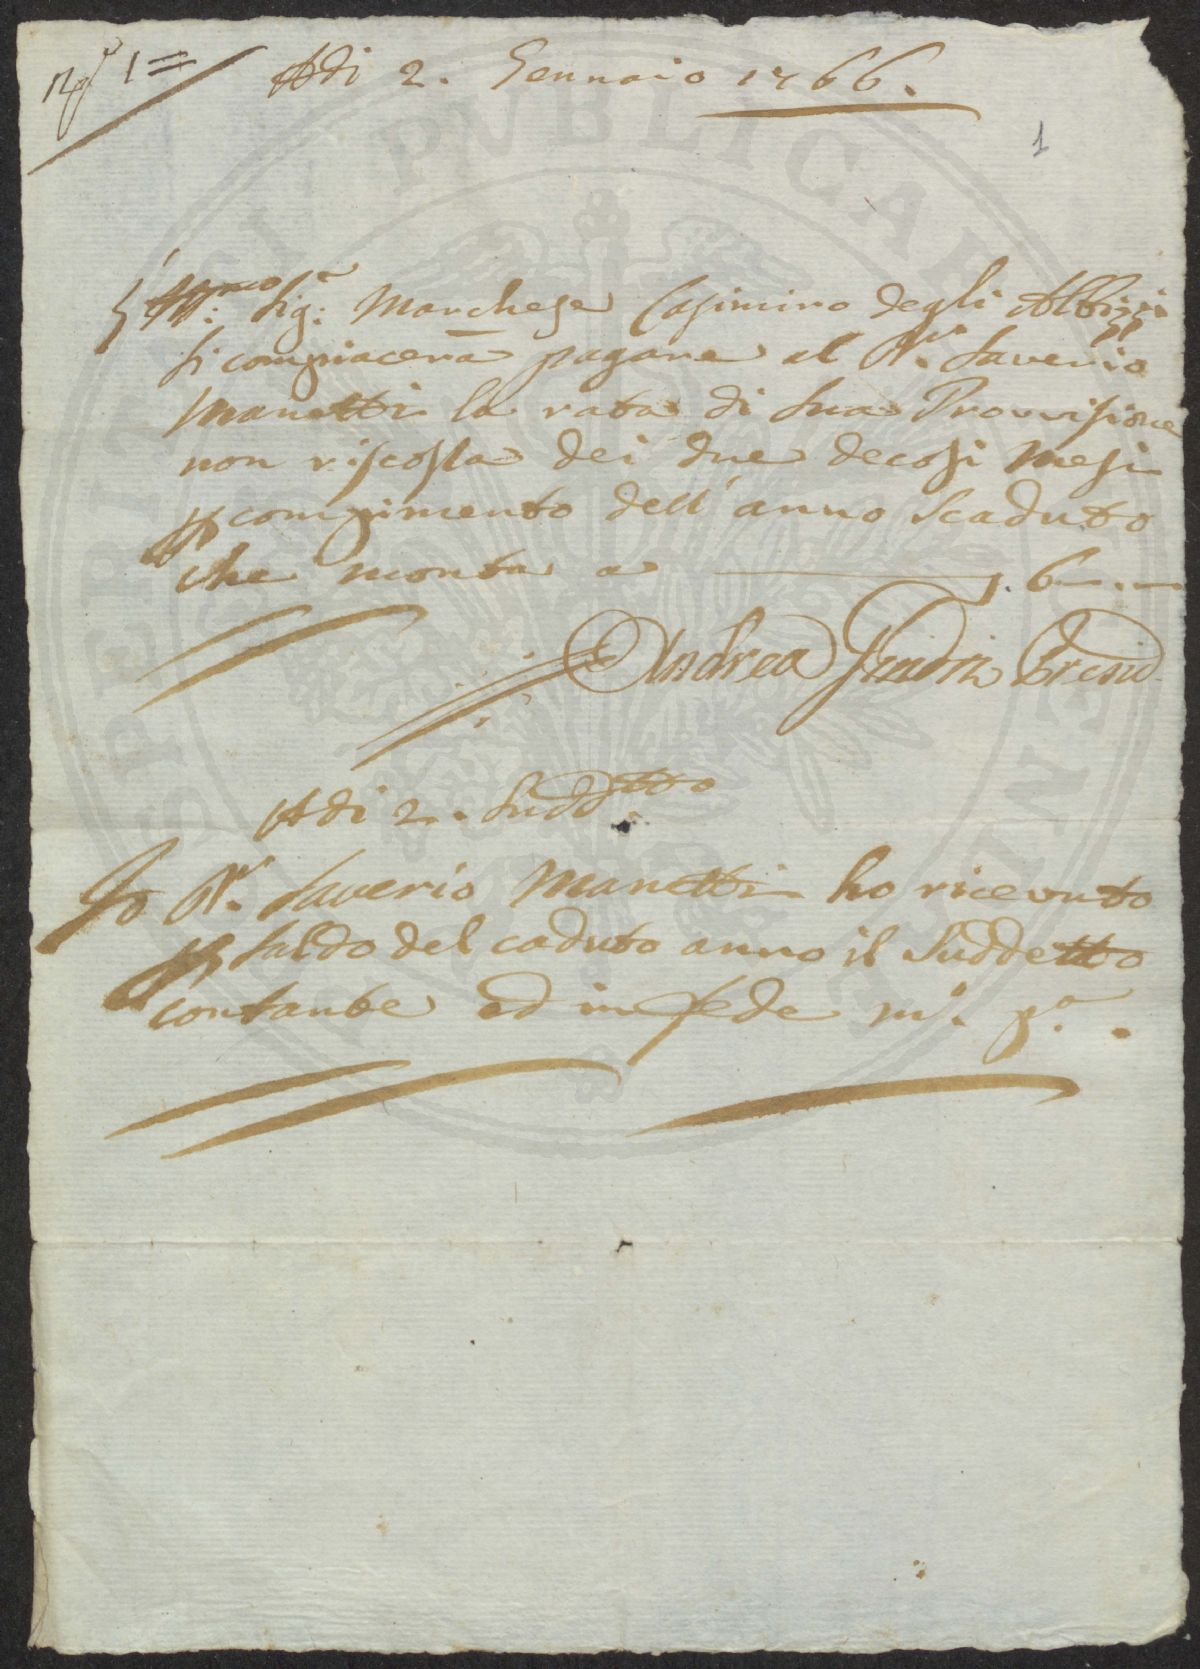 N.° 1 = Adi 2. Gennaio 1766.
1
Ill.mo Sig.r Marchese Casimiro degli Albizzi
Si compiacerà pagare al D.r Saverio
Manetti la rata di sua Provvisione
non riscossa dei due decorsi mesi
compimento dell'anno scaduto
che monta a 6
Andrea Presid.
Adi 2. Sudd.tto
Io D.r Saverio Manetti ho ricevuto
saldo del caduto anno il suddetto
contante ed in fede m.o p.a
PROSPERITATI PUBLICAE